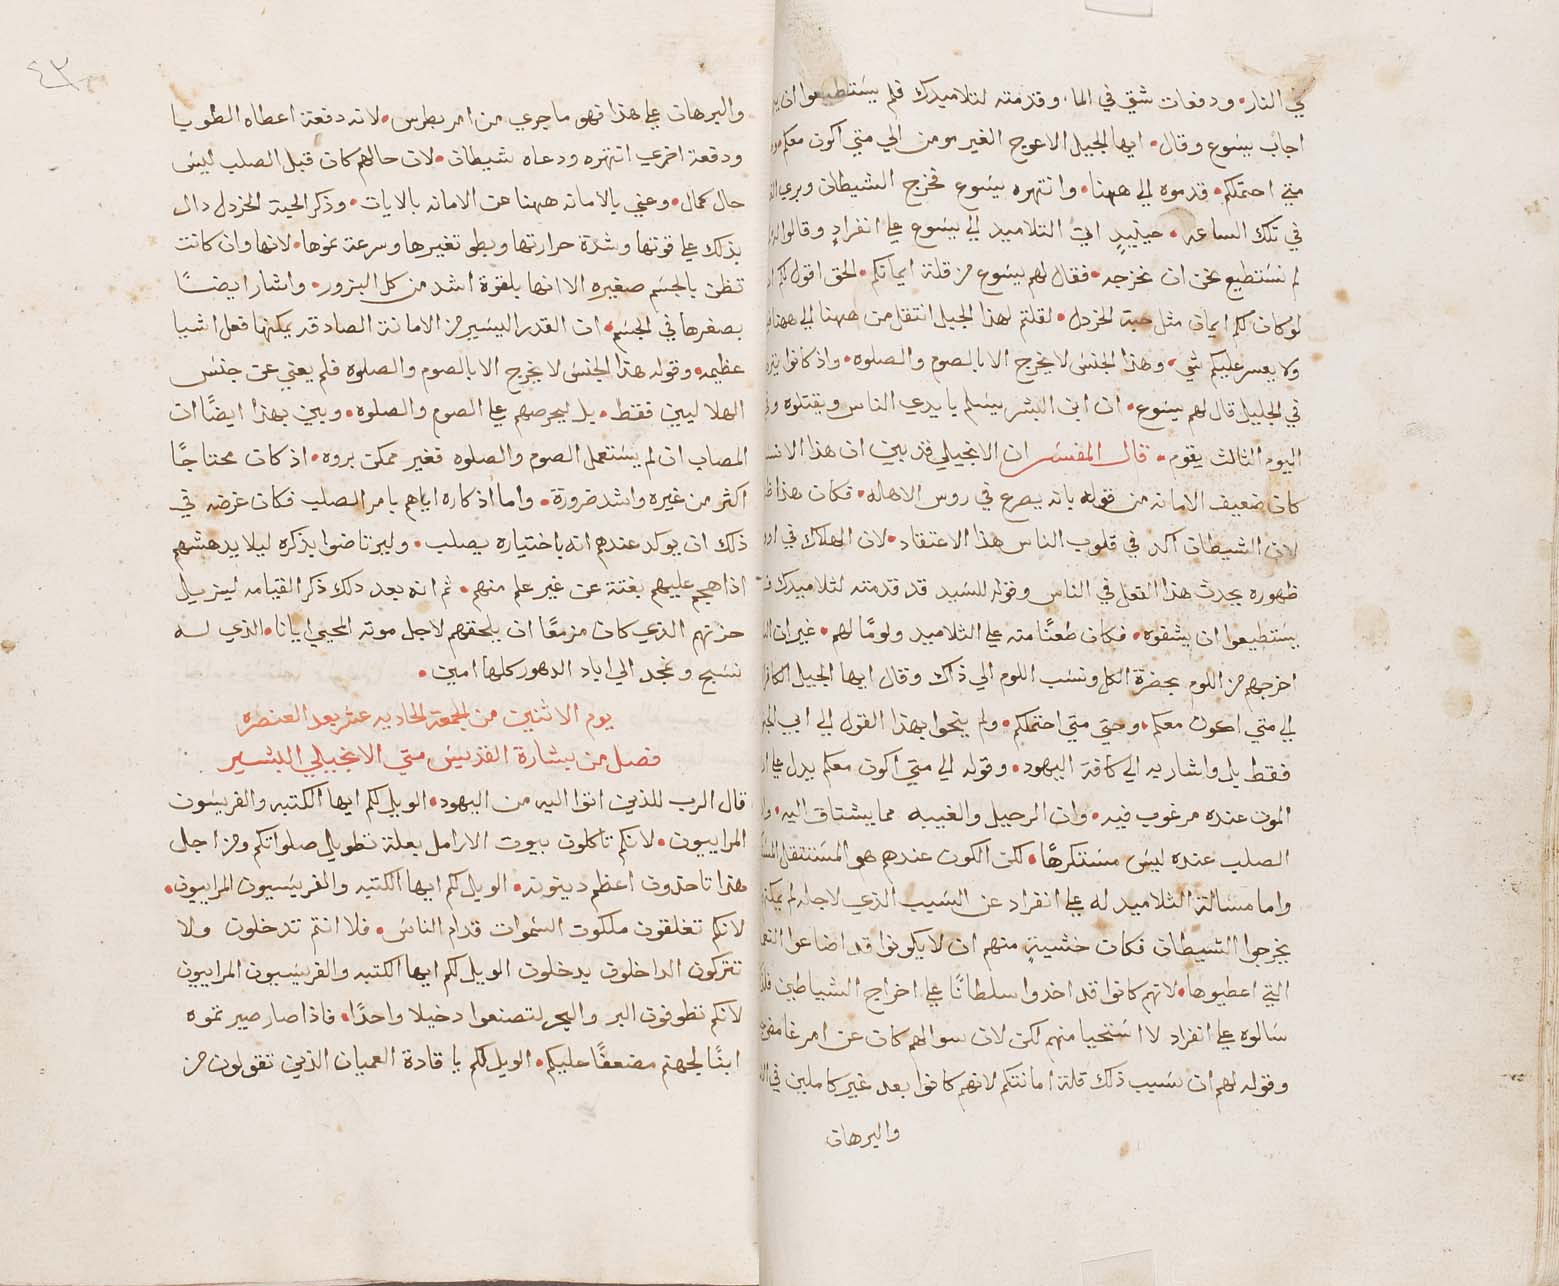 في النار٠ ودفعات شتي في الما٠ وقدمته لتلاميدك فلم يستطيعوا ان
اجاب يسوع وقال٠ ايها الجيل الاعوج الغير مومن الي متي اكون معكم
متي احتملكم٠ قدموه لي ههنا٠ وانتهره يسوع فخرج الشيطان وبري
في تلك الساعه٠ حينيدٍ اتي التلاميد الي يسوع علي انفرادٍ وقالوا
لم نستطيع نحن ان نخرجه٠ فقال لهم يسوع من قلة ايمانكم٠ الحق اقول لكم
لو كان لكم ايمان مثل حبة الخردل٠ لقلتم لهذا الجبل انتقل من ههنا الي ههنا
ولا يعسر عليكم شي٠ وهذا الجنس لا يخرج الا بالصوم والصلوه٠ واذ كانوا
في الجليل قال لهم يسوع٠ ان ابن البشر يسلم بايدي الناس ويقتلوه
اليوم الثالث يقوم٠ قال المفسر ان الانجيلي قد بين ان هذا
كان ضعيف الامانه من قوله بانه يصرع في روس الاهله٠ فكان هذا
لان الشيطان اكد في قلوب الناس هذا الاعتقاد٠ لان الهلاك في
ظهوره يحدث هذا الفعل في الناس وقوله للسيد قد قدمته لتلاميدك
يستطيعوا ان يشفوه٠ فكان طعنًا منه علي التلاميد ولومًا لهم٠ غير ان
اخرجهم من اللوم بحضرة الكل ونسب اللوم الي ذاك وقال ايها الجيل
الي متي اكون معكم٠ وحتي متي احتملكم٠ ولم ينحوا بهذا القول الي ابي
فقط بل واشار به الي كافة اليهود٠ وقوله الي متي اكون معكم يدل
الموت عنده مرغوب فيه٠ وان الرحيل والغيبه مما يشتاق اليه٠
الصلب عنده ليس مستكرهًا٠ لكن الكون عندهم هو المستثقل
واما مسالة التلاميد له علي انفراد عن السبب الذي لاجله لم
يخرجوا الشيطان فكان خشيةٍ منهم ان لا يكونوا قد اضاعوا
التي اعطيوها٠ لانهم كانوا قد اخدوا سلطانًا علي اخراج الشياطين
سالوه علي انفراد لا استحيا منهم لكن لان سوالهم كان عن امر
وقوله لهم ان سبب ذلك قلة امانتكم لانهم كانوا بعد غير كاملين في
والبرهان
٤٣
والبرهان علي هذا فهو ما جري من امر بطرس٠ لانه دفعة اعطاه الطوبا
ودفعة اخري انتهره ودعاه شيطان٠ لان حالهم كان قبل الصلب ليس
حال كمال٠ وعني بالامانه ههنا عن الامانه بالايات٠ وذكر الحبة الخردل دال
بذلك علي قوتها وشدة حرارتها وبطو تغيرها وسرعة نموها٠ لانها وان كانت
تظن بالجسم صغيره الا انها بالقوة اشد من كل البزور٠ واشار ايضًا
بصغرها في الجسم٠ ان القدر اليسير من الامانة الصادقه يمكنها فعل اشيا
عظيمه٠ وقوله هذا الجنس لا يخرج الا بالصوم والصلوه فلم يعني عن جنس
الهلاليين فقط٠ بل ليحرصهم علي الصوم والصلوه٠ وبين بهذا ايضًا ان
المصاب ان لم يستعمل الصوم والصلوه فغير ممكن بروه٠ اذ كان محتاجًا
اكثر من غيره واشد ضرورة٠ واما اذكاره اياهم بامر الصلب فكان غرضه في
ذلك ان يوكد عندهم انه باختياره يصلب٠ وليرتاضوا بذكره ليلا يدهشهم
اذا هجم عليهم بغتة عن غير علم منهم٠ ثم انه بعد دلك ذكر القيامه ليزيل
حزنهم الذي كان مزمعًا ان يلحقهم لاجل موته المحيي ايانا٠ الذي له
نسبح ونمجد الي اباد الدهور كلها امين٠
يوم الاثنين من الجمعة الحاديه عشر بعد العنصره
فصل من بشارة القديس متي الانجيلي البشير
قال الرب للذين اتوا اليه من اليهود٠ الويل لكم ايها الكتبه والفريسون
المراييون٠ لانكم تاكلون بيوت الارامل بعلة تطويل صلواتكم ومن اجل
هذا تاخذون اعظم دينونه٠ الويل لكم ايها الكتبه والفريسيون المراييون٠
لانكم تغلقون ملكوت السموات قدام الناس٠ فلا انتم تدخلون ولا
تتركون الداخلون يدخلون الويل لكم ايها الكتبه والفريسيون المراييون
لانكم تطوفون البر والبحر لتصنعوا دخيلا واحدًا٠ فاذا صار صيرتموه
ابنًا لجهنم مضعفًا عليكم٠ الويل لكم يا قادة العميان الذين تقولون من